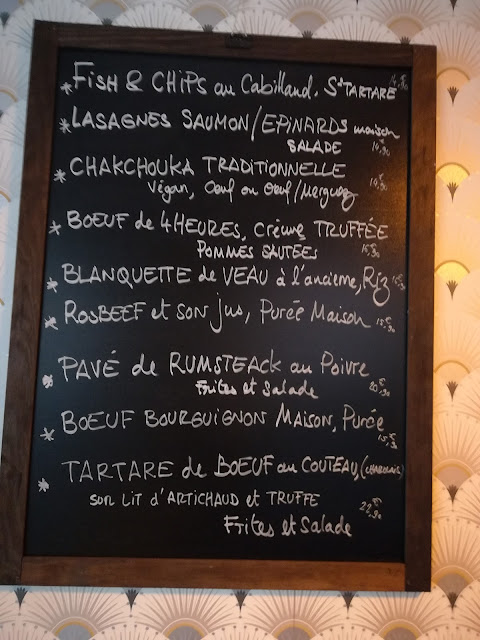 * FISH & CHIPS au Cabillaud. Sce TARTARE
* LASAGNES SAUMON/EPINARDS maison
SALADE
* CHAKCHOUKA TRADITIONNELLE
Végan, Oeuf ou Oeuf/Merguez
* BOEUF de 4 HEURES, Crème TRUFFÉE
POMMES SAUTÉES 15,90
* BLANQUETTE de VEAU à l'ancienne, Riz
* ROSBEEF et son jus, Purée Maison 15,90
* PAVÉ de RUMSTEACK au Poivre
Frites et Salade 20,90
* BOEUF BOURGUIGNON MAISON, Purée
* TARTARE de BOEUF au COUTEAU, (CHAROLAIS)
SON LIT d'ARTICHAUD et TRUFFE 22,90
Frites et Salade